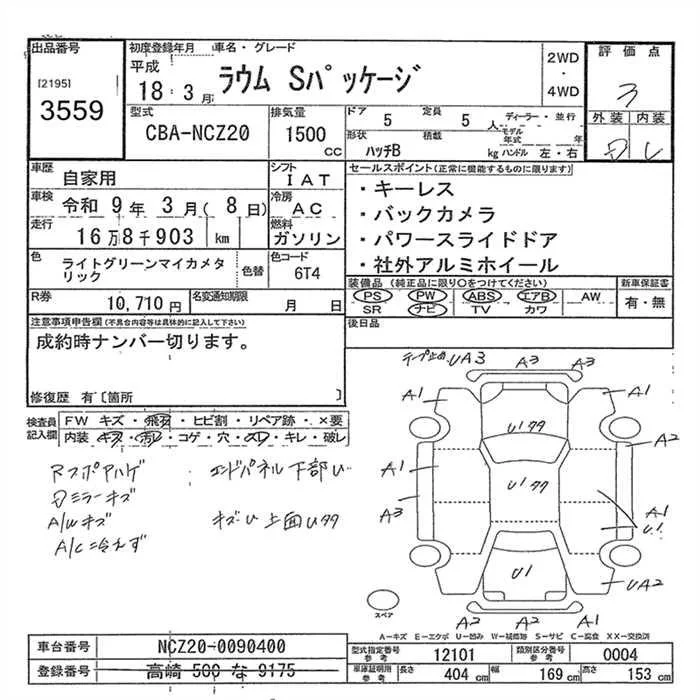 出品番号
[2195]
3559
初度登録年月
平成
18・3月
車名・グレード
ラウム Sパッケージ
2WD
・
4WD
評価点
3
外装 内装
型式
CBA-NCZ20
排気量
1500
cc
ドア
5
定員
5
人
ディーラー・並行
形状
ハッチB
積載
kg
モデル年式
年
ハンドル 左・右
車歴
自家用
シフト
IAT
車検
令和 9年 3月( 8日)
冷房
AC
走行
16万8千903 km
燃料
ガソリン
色
ライトグリーンマイカメタリック
色替
色コード
6T4
R券
10,710円
名変通知期限
月 日
セールスポイント(正常に機能するものに限ります)
・キーレス
・バックカメラ
・パワースライドドア
・社外アルミホイール
装備品(純正品に限り○をつけてください)
PS PW ABS エアB AW
SR ナビ TV カワ
新車保証書
有・無
後日品
注意事項申告欄(不具合内容等は具体的に記入して下さい)
成約時ナンバー切ります。
修復歴 有〔箇所 〕
検査員記入欄
FW キズ・飛石・ヒビ割・リペア跡・×要
内装 キズ・汚レ・コゲ・穴・スレ・キレ・破レ
Rスポアハゲ
エンドパネル下部U
ミラーキズ
A/Wキズ
キズU 上面Uタタ
A/C冷えず
テープ止め UA3
A3
A3
A1
A1
A2
A1
A3
A1
U1
Uタタ
U1タタ
U1
UA2
A2
A2
A1
スペア
A-キズ E-エクボ U-凹み W-補修跡 S-サビ C-腐食 XX-交換済
車台番号
NCZ20-0090400
登録番号
高崎 500 な 9175
型式指定番号
参考
12101
類別区分番号
参考
0004
車庫証明用
参考
長さ
404 cm
幅
169 cm
高さ
153 cm